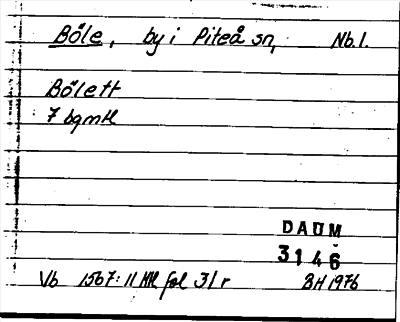 Böle, by i Piteå sn, Nb.l.
Bölett
7 bgmtl
DAUM
3146
Vb 1567:11 HH fol 31 r BH 1976